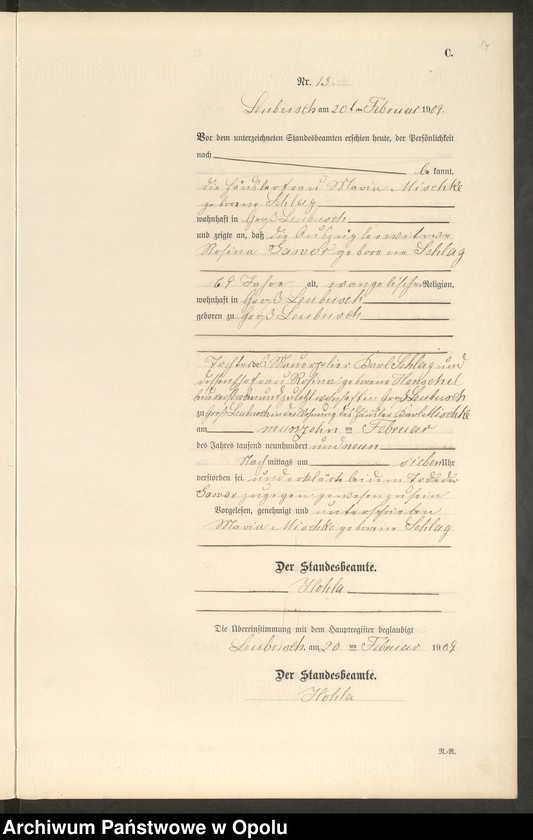 14
C.
Nr. 13.
Leubusch am 20ten Februar 1909.
Vor dem unterzeichneten Standesbeamten erschien heute, der Persönlichkeit
nach be kannt,
die Händlerfrau Maria Mischke
geborene Schlag
wohnhaft in Groß Leubusch
und zeigte an, daß die Auszüglerwitwe
Rosina Gawor geborene Schlag
69 Jahre alt, evangelischer Religion,
wohnhaft in Groß Leubusch
geboren zu Groß Leubusch
Tochter des Mauerpolier Karl Schlag und
dessen Ehefrau Rosina geborene Henschel
beide verstorben und zuletzt wohnhaft in Groß Leubusch
zu Groß Leubusch in der Wohnung des Händlers Karl Mischke
am neunzehn ten Februar
des Jahres tausend neunhundert und neun
Nach mittags um sieben Uhr
verstorben sei und erklärte bei dem Tode der
Gawor zugegen gewesen zu sein
Vorgelesen, genehmigt und unterschrieben
Maria Mischke geborene Schlag
Der Standesbeamte.
Hohla
Die Übereinstimmung mit dem Hauptregister beglaubigt
Leubusch am 20 ten Februar 1909
Der Standesbeamte.
Hohla
R.-R.
Archiwum Państwowe w Opolu